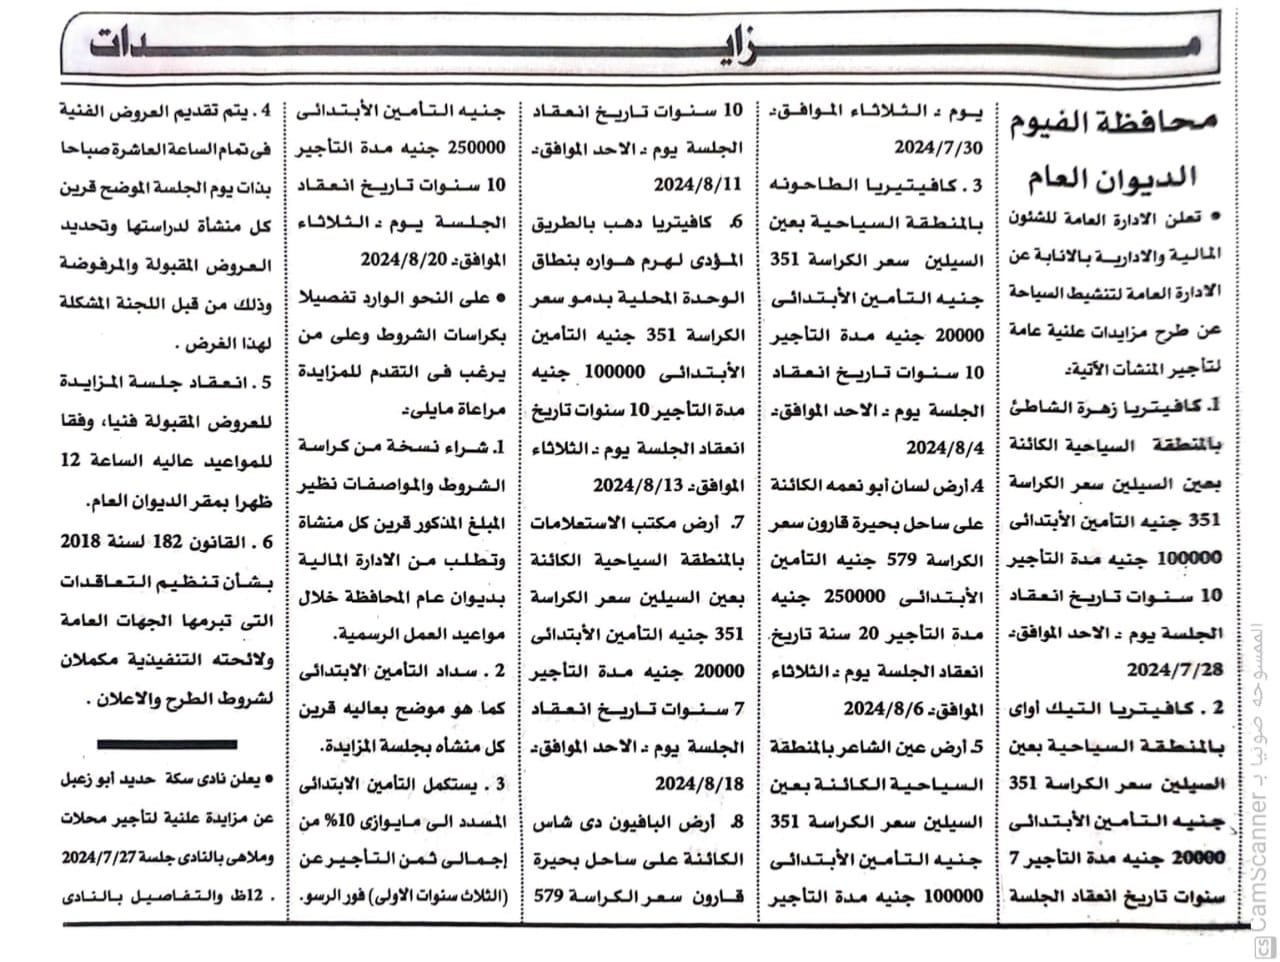 مـــزايـــدات
محافظة الفيوم
الديوان العام
• تعلن الادارة العامة للشئون
المالية والادارية بالانابة عن
الادارة العامة لتنشيط السياحة
عن طرح مزايدات علنية عامة
لتأجير المنشآت الآتية:ـ
1. كافيتريا زهرة الشاطئ
بالمنطقة السياحية الكائنة
بعين السيلين سعر الكراسة
351 جنيه التأمين الأبتدائى
100000 جنيه مدة التأجير
10 سنوات تاريخ انعقاد
الجلسة يوم :ـ الاحد الموافق:ـ
2024/7/28
2 . كافيتريا التيك أواى
بالمنطقة السياحية بعين
السيلين سعر الكراسة 351
جنيه التأمين الأبتدائى
20000 جنيه مدة التأجير 7
سنوات تاريخ انعقاد الجلسة
يوم :ـ الثلاثاء الموافق:ـ
2024/7/30
3 . كافيتيريا الطاحونه
بالمنطقة السياحية بعين
السيلين سعر الكراسة 351
جنيه التأمين الأبتدائى
20000 جنيه مدة التأجير
10 سنوات تاريخ انعقاد
الجلسة يوم :ـ الاحد الموافق:ـ
2024/8/4
4. أرض لسان أبو نعمه الكائنة
على ساحل بحيرة قارون سعر
الكراسة 579 جنيه التأمين
الأبتدائى 250000 جنيه
مدة التأجير 20 سنة تاريخ
انعقاد الجلسة يوم :ـ الثلاثاء
الموافق:ـ 2024/8/6
5. أرض عين الشاعر بالمنطقة
السياحية الكائنة بعين
السيلين سعر الكراسة 351
جنيه التأمين الأبتدائى
100000 جنيه مدة التأجير
10 سنوات تاريخ انعقاد
الجلسة يوم :ـ الاحد الموافق:ـ
2024/8/11
6. كافيتريا دهب بالطريق
المؤدى لهرم هواره بنطاق
الوحدة المحلية بدمو سعر
الكراسة 351 جنيه التأمين
الأبتدائى 100000 جنيه
مدة التأجير 10 سنوات تاريخ
انعقاد الجلسة يوم :ـ الثلاثاء
الموافق:ـ 2024/8/13
7. أرض مكتب الاستعلامات
بالمنطقة السياحية الكائنة
بعين السيلين سعر الكراسة
351 جنيه التأمين الأبتدائى
20000 جنيه مدة التأجير
7 سنوات تاريخ انعقاد
الجلسة يوم :ـ الاحد الموافق:ـ
2024/8/18
8. أرض البافيون دى شاس
الكائنة على ساحل بحيرة
قارون سعر الكراسة 579
جنيه التأمين الأبتدائى
250000 جنيه مدة التأجير
10 سنوات تاريخ انعقاد
الجلسة يوم :ـ الثلاثاء
الموافق:ـ 2024/8/20
• على النحو الوارد تفصيلا
بكراسات الشروط وعلى من
يرغب فى التقدم للمزايدة
مراعاة مايلى:ـ
1. شراء نسخة من كراسة
الشروط والمواصفات نظير
المبلغ المذكور قرين كل منشاة
وتطلب من الادارة المالية
بديوان عام المحافظة خلال
مواعيد العمل الرسمية.
2 . سداد التأمين الابتدائى
كما هو موضح بعاليه قرين
كل منشأه بجلسة المزايدة.
3 . يستكمل التأمين الابتدائى
المسدد الى مايوازى 10% من
إجمالى ثمن التأجير عن
(الثلاث سنوات الاولى) فور الرسو.
4 . يتم تقديم العروض الفنية
فى تمام الساعة العاشرة صباحا
بذات يوم الجلسة الموضح قرين
كل منشأة لدراستها وتحديد
العروض المقبولة والمرفوضة
وذلك من قبل اللجنة المشكلة
لهذا الغرض .
5 . انعقاد جلسة المزايدة
للعروض المقبولة فنيا، وفقا
للمواعيد عاليه الساعة 12
ظهرا بمقر الديوان العام.
6 . القانون 182 لسنة 2018
بشأن تنظيم التعاقدات
التى تبرمها الجهات العامة
ولائحته التنفيذية مكملان
لشروط الطرح والاعلان .
• يعلن نادى سكة حديد أبو زعبل
عن مزايدة علنية لتأجير محلات
وملاهى بالنادى جلسة 2024/7/27
. 12ظ والتفاصيل بالنادى
الممسوحة ضوئيا بـ CamScanner
CS